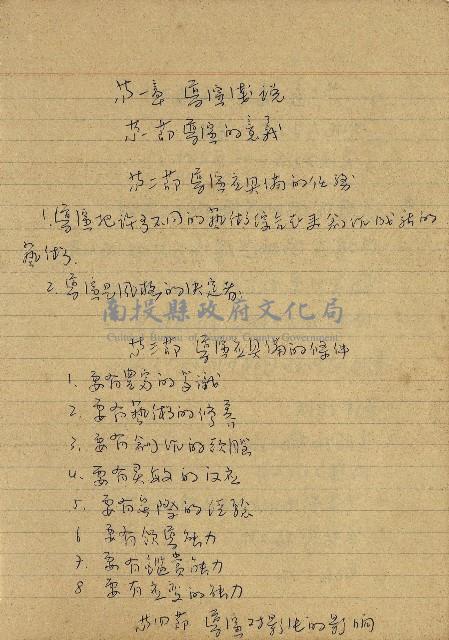 第一章 導演概說
第一節 導演的意義
第二節 導演應具備的任務
1. 導演把許多不同的藝術綜合起來創作成新的
藝術.
2. 導演是風格的決定者.
南投縣政府文化局
Cultural Bureau of Nantou County Government
第三節 導演應具備的條件
1. 要有豐富的學識
2. 要有藝術的修養
3. 要有創作的頭腦
4. 要有灵敏的反应
5. 要有實際的経驗
6 要有領導能力
7. 要有鑑賞能力
8 要有应变的能力
第四節 導演对影片的影响